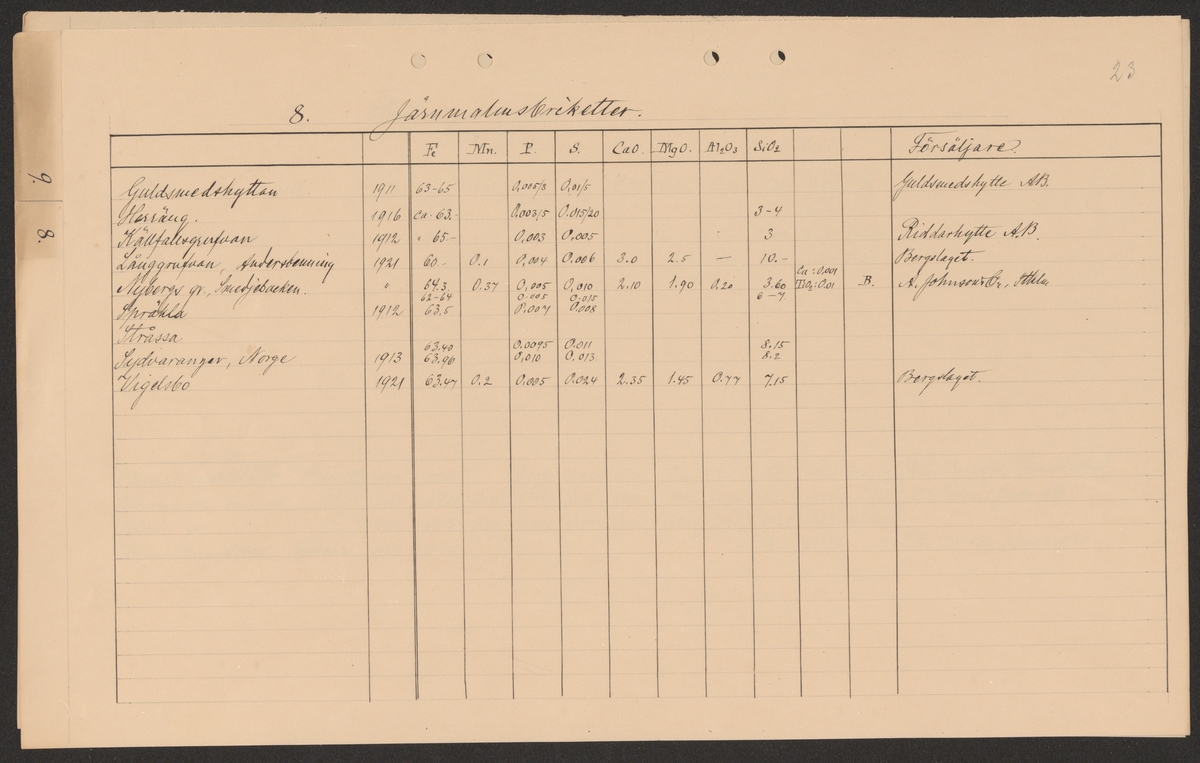 23
8. Järnmalmsbriketter.
Fe Mn. P. S. CaO. MgO. Al2O3 SiO2 Försäljare.
Guldsmedshyttan 1911 63-65 0,005/8 0,01/5 Guldsmedshytte AB.
Herräng. 1916 ca. 63.- 0.003/5 0.015/20 3-4
Källfallsgrufvan 1912 " 65- 0,003 0.005 3 Riddarhytte A.B.
Långgrufvan, 1921 60.- 0.1 0,004 0.006 3.0 2.5 — 10.- Bergslaget.
Cu: 0.001
Nybergs gr., Smedjebacken. " 64.3 0.37 0,005 0,010 2.10 1.90 0,20 3.60 TiO2: 0.01 B. A. Johnson & Co., Sthlm
62-64 0.005 0.015 6-7
1912 63.5 0.007 0.008
Stråssa
63.40 0.0095 0.011 8.15
Sydvaranger, Norge 1913 63.96 0,010 0,013 8.2
Vigelsbo 1921 63.47 0.2 0.005 0.024 2.35 1.45 0.77 7.15 Bergslaget.
9.
8.